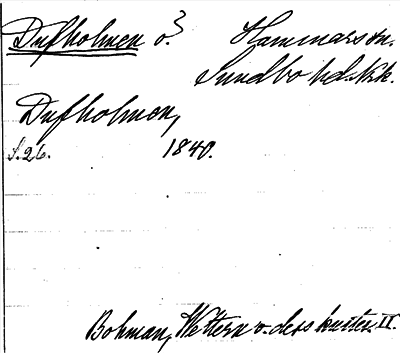 Dufholmen ö.
Hammars sn.
Sundbo hd. Nrk.
Dufholmen,
s. 26. 1840.
Bohman, Wettern o. dess kuster. II.